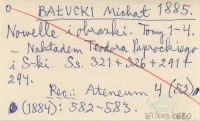 BAŁUCKI Michał 1885.
Nowelle i obrazki. Tomy 1-4.
— Nakładem Teodora Paprockiego
i S-ki. Ss. 321+326+291+
294.
Rec.: Ateneum 4 (52)
(1884): 582-583.